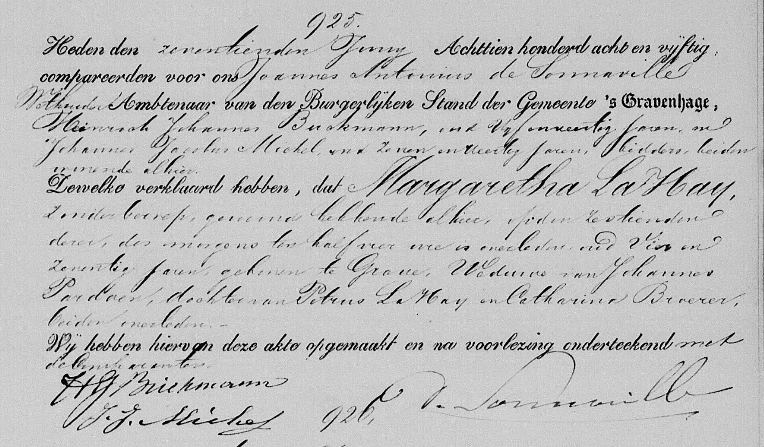 925.
Heden den zeventienden Juny Achttien honderd acht en vijftig,
compareerden voor ons Joannes Antonius de Sonnaville
Wethouder Ambtenaar van den Burgerlijken Stand der Gemeente 's Gravenhage,
Hinrich Johannes Buckmann, oud Vijf en veertig Jaren, en
Johannes Jacobus Michel, oud zeven en veertig Jaren, bidders, beiden
wonende alhier.
Dewelke verklaard hebben, dat Margaretha LaHay,
zonder beroep, gewoond hebbende alhier, op den zestienden
dezer, des morgens ten half vier ure is overleden, oud Vier en
zeventig Jaren, geboren te Grave, Weduwe van Johannes
Pardoen, dochter van Petrus LaHay en Catharina Broeren,
beiden overleden.-
Wij hebben hiervan deze akte opgemaakt en na voorlezing onderteekend met
de Comparanten.
HJ Buckmann
J. J. Michel 926. de Sonnaville